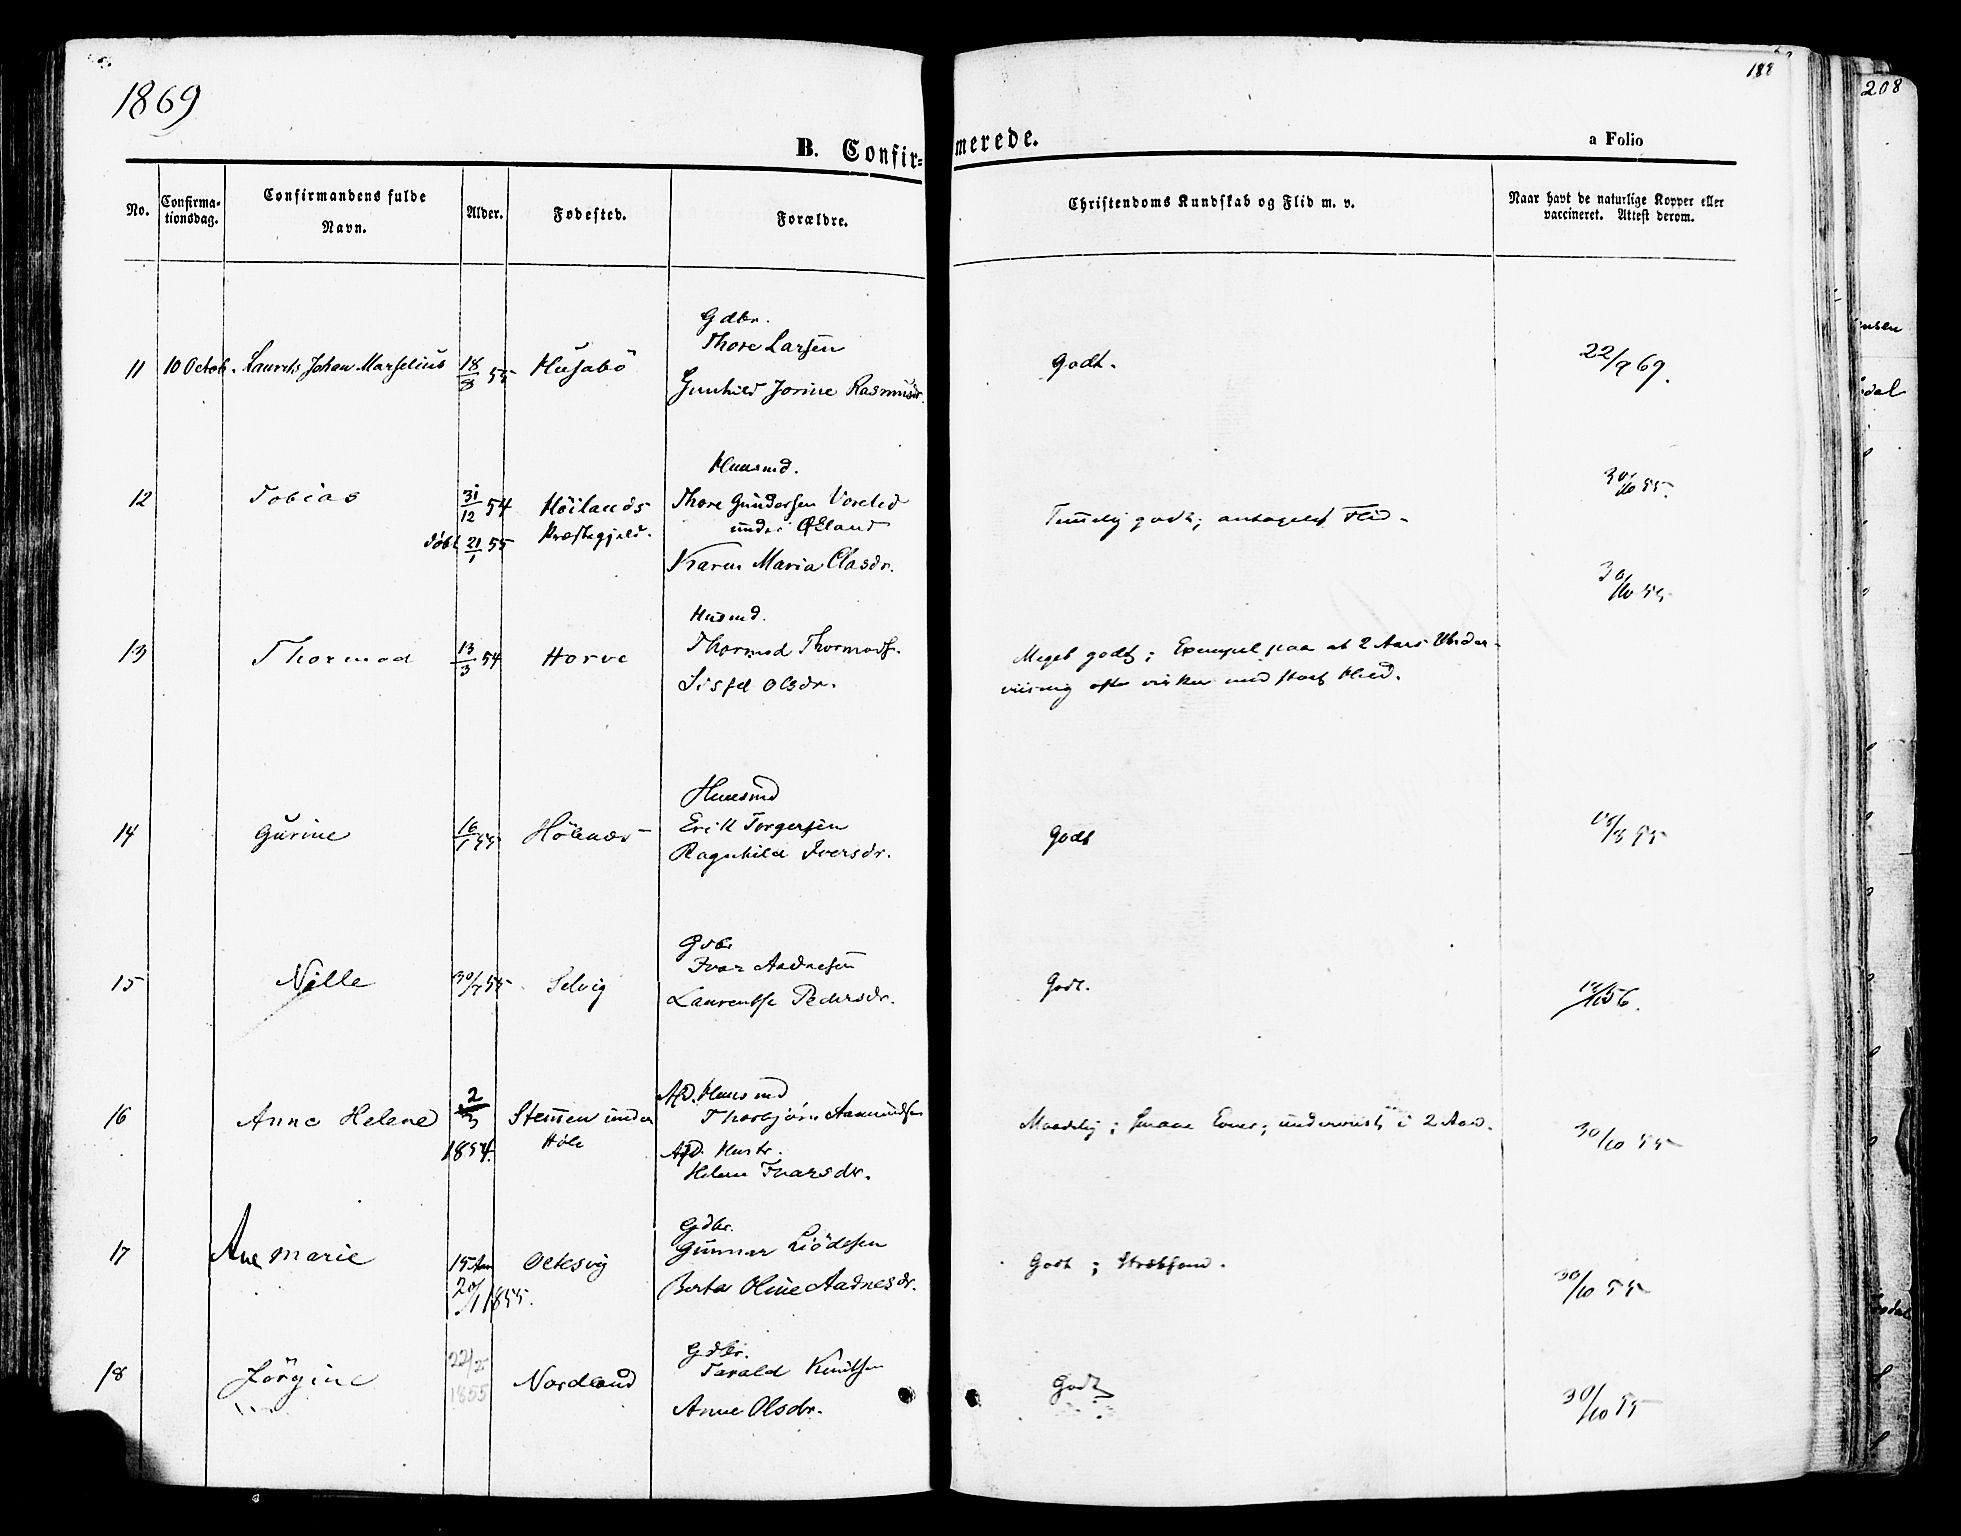 1869
188
208
B. Confir=
merede.
a Folio
No.
Confirma-
tionsdag.
Confirmandens fulde
Navn.
Alder.
Fødested.
Forældre.
Christendoms Kundskab og Flid m. v.
Naar havt de naturlige Kopper eller
vaccineret. Attest derom.
Gdbr.
Thore Larsen
11 10 Octob. Laurits Johan Marselius 18/8 55 Husabö
Gunhild Jorine Rasmusdr.
Godt.
22/9 69.
Huusmd.
12 Tobias 31/12 54 Höilands
Præstegjeld.
döbt 21/1 55
Thore Gundersen
under Öeland
Karen Maria Olasdr.
Temmelig godt; antagelig Flid.
30/10 55.
30/10 55
Husmd.
13 Thormod 13/3 54 Horve
Thormod Thormods.
Sissel Olsdr.
Meget godt; Exempel paa at 2 Aars Under-
viisning ofte virker med stort Flid.
Huusmd
14 Gurine 16/1 55
Erik Torgersen
Ragnhild Iversdr.
Godt
Gdbr
15 Nille 30/7 55 Selvig
Ivar Aadnesen
Laurentse Pedersdr.
Godt.
Afd. Huusmd
16 Anne Helene 2/3
1854.
Stemmen under
Höle
Thorbjörn Aamundsen
Afd. Hustr.
Helene Ivarsdr.
Maadelig; smaae Evner; underviist i 2 Aar.
30/10 55
Gdbr.
17 Ane Marie 15 Aar
20/11 1855.
Oltesvig
Gunnar Liödesen
Berta Oline Aadnesdr.
Godt; Stræbsom.
30/10 55
Gdbr.
18 Jörgine
1855
Nordland
Tarald Knutsen
Anne Olsdr.
Godt
30/10 55